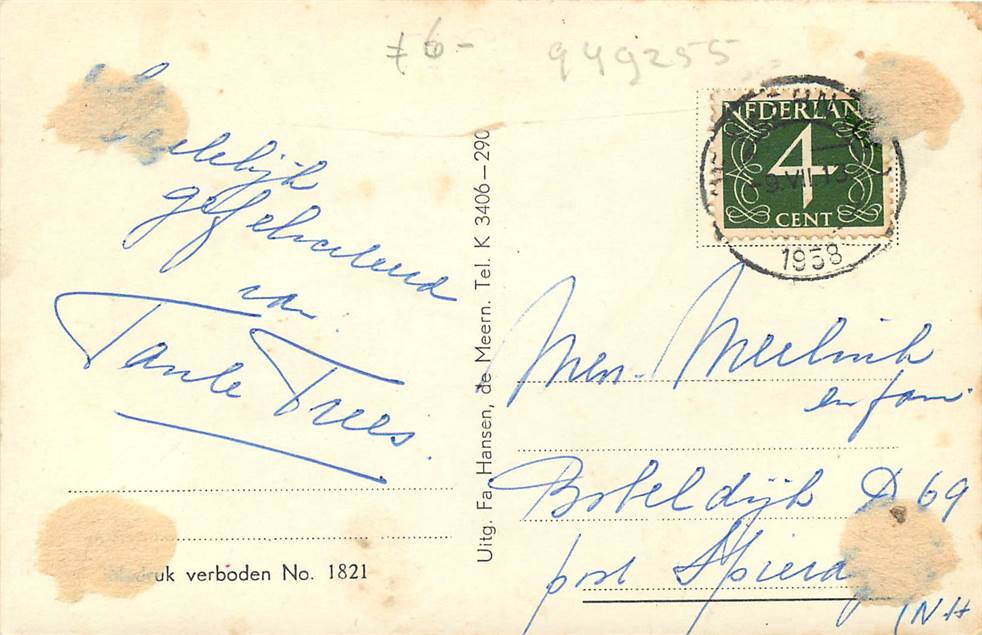 76-
949255
gefeliciteerd
van
Tante Trees.
druk verboden No. 1821
Uitg. Fa. Hansen, de Meern. Tel. K 3406-290
NEDERLAND
4
CENT
1958
Meelink
en fam.
Bobeldijk D 69
post Spierd
(N H